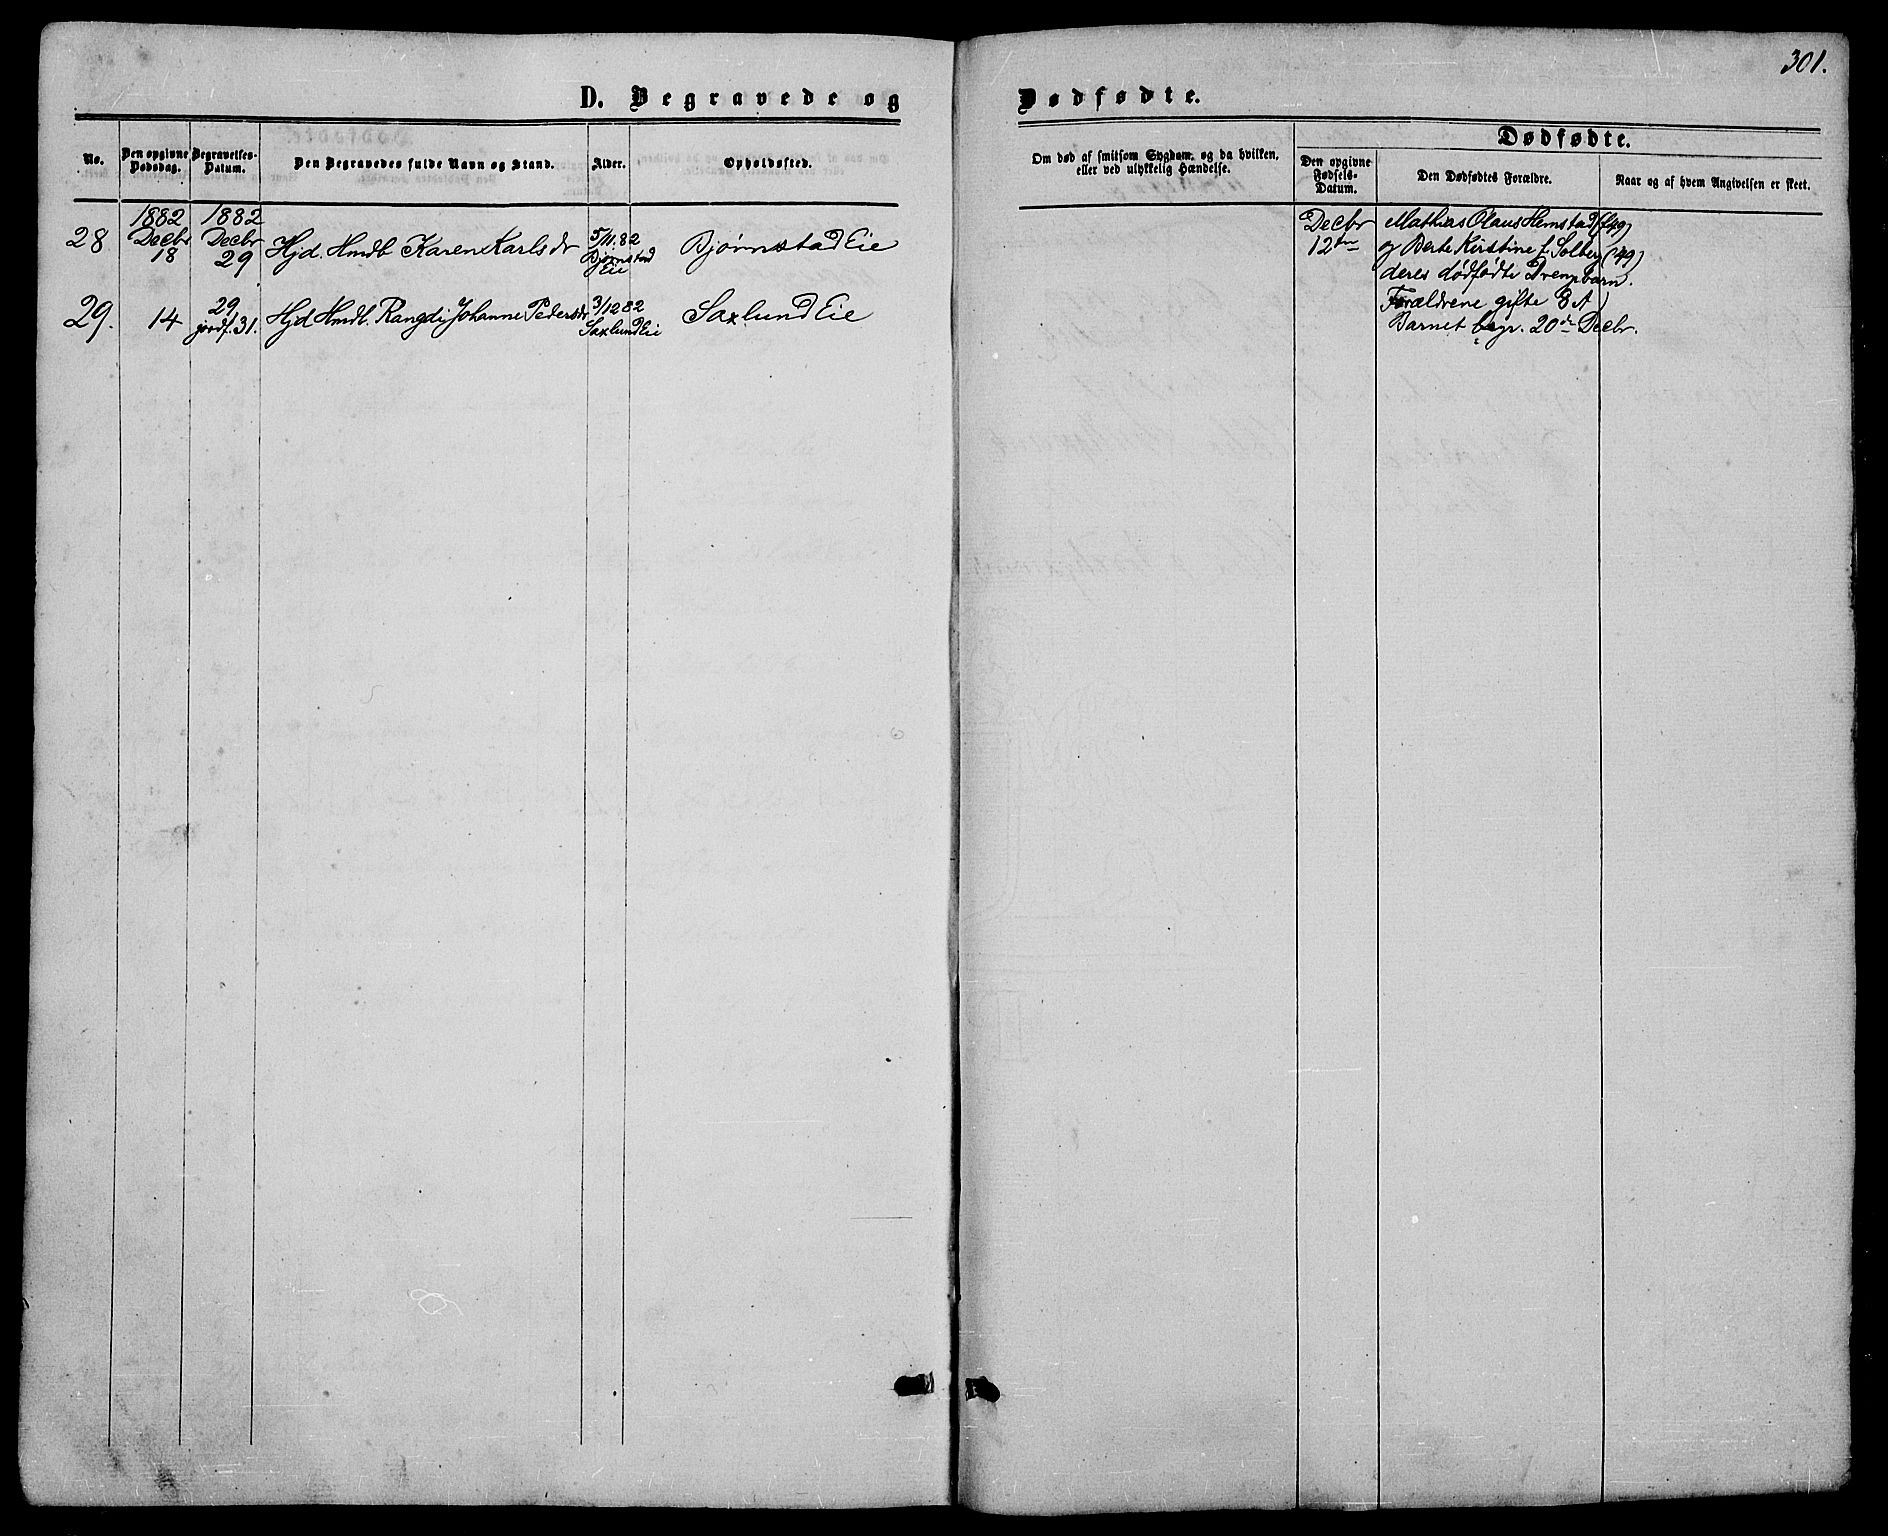 301.
D. Begravede og
Dødfødte.
No.
Den opgivne Dødsdag.
Begravelses-Datum.
Den Begravedes fulde Navn og Stand.
Alder.
Opholdssted.
Om død af smitsom Sygdom, og da hvilken,
eller ved ulykkelig Hændelse.
Dødfødte.
Den opgivne Fødsels-Datum.
Den Dødfødtes Forældre.
Naar og af hvem Angivelsen er skeet.
28
1882 Decbr 18
1882 Decbr 29
Hjd. Hmdb Karen Karlsdr
5/11.82 Bjørnstad Eie
Bjørnstad Eie
29.
14
29/ jordf. 31.
Hjd Hmdb. Rangdi Johanne Pedersdr
3/12 82 Saxlund Eie
Saxlund Eie
Decbr 12te
Mathias Olaus Hemstad (49)
og Berte Kirstine f. Solberg (49)
deres dødfødte Drengebarn.
Forældrene gifte 8 A
Barnet begr. 20de Decbr.